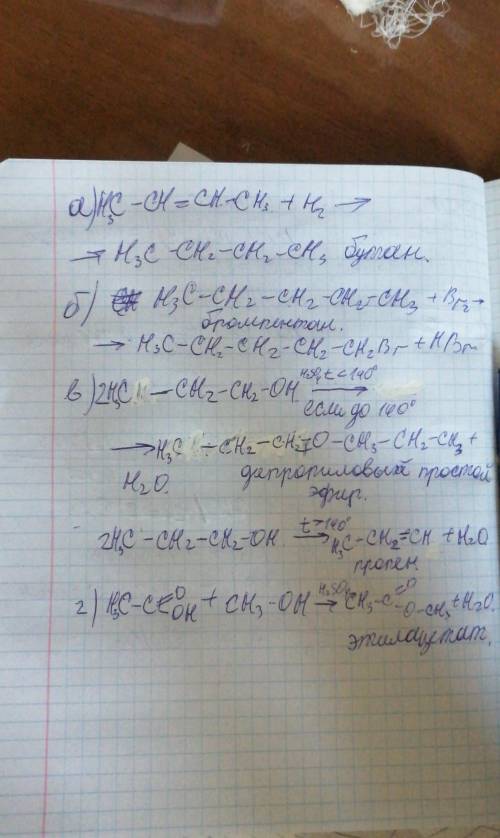 а) H₃C – CH = CH – CH₃ + H₂ →
→ H₃C – CH₂ – CH₂ – CH₃ бутан.
б) H₃C – CH₂ – CH₂ – CH₂ – CH₃ + Br₂ →
бромпентан.
→ H₃C – CH₂ – CH₂ – CH₂ – CH₂Br + HBr
в) 2H₃C – CH₂ – CH₂ – OH H₂SO₄ t < 140° →
если до 140°
→ H₃C – CH₂ – CH₂ – O – CH₂ – CH₂ – CH₃ +
H₂O. дипропиловый простой
эфир.
2H₃C – CH₂ – CH₂ – OH t > 140° → H₃C – CH₂ = CH + H₂O
пропен.
г) H₃C – C = O OH + CH₃ – OH H₂SO₄ → CH₃ – C = O – O – CH₃ + H₂O.
этилацетат.